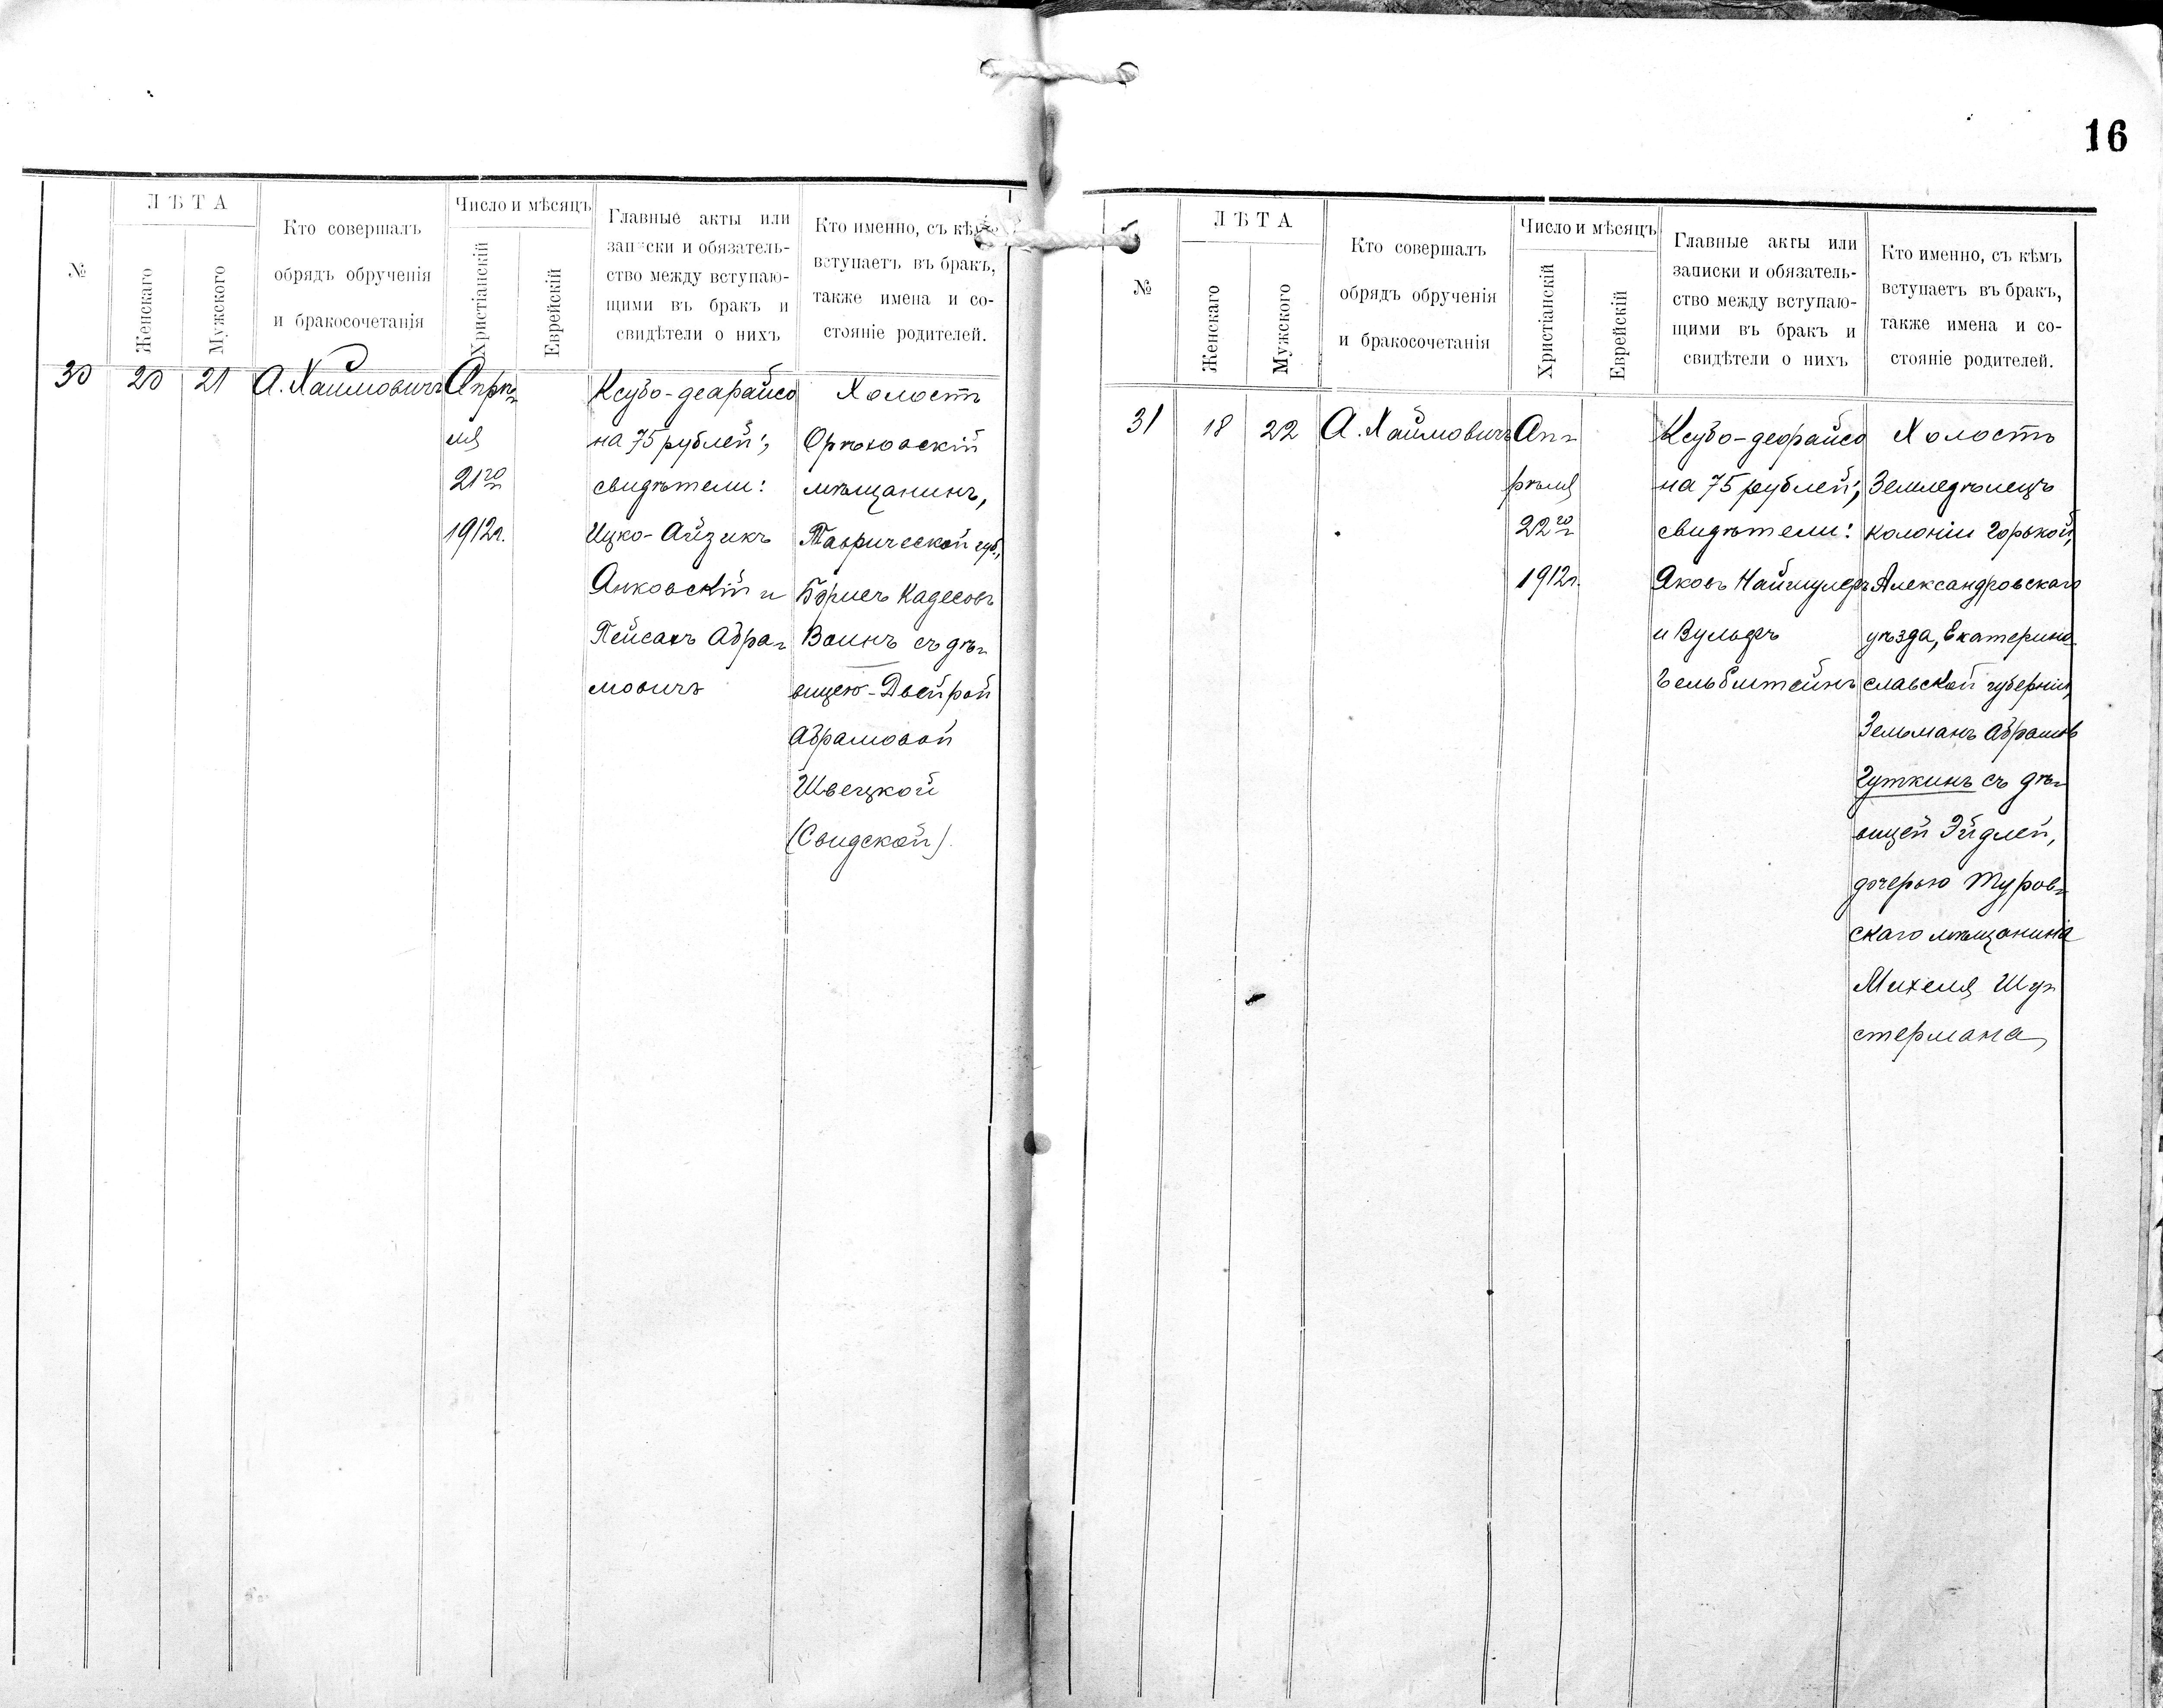 16
№
ЛѢТА
Женскаго
Мужского
Кто совершалъ
обрядъ обрученія
и бракосочетанія
Число и мѣсяцъ
Христіанскій
Еврейскій
Главные акты или
записки и обязатель-
ство между вступаю-
щими въ бракъ и
свидѣтели о нихъ
Кто именно, съ кѣмъ
вступаетъ въ бракъ,
также имена и со-
стояніе родителей.
30
20
21
А. Хаимовичъ
Апрѣ-
ля
21го
1912г.
Ксубо-деарайсо
на 75 рублей;
свидѣтели:
Ицко-Айзикъ
Анковскій и
Пейсахъ Абра-
мовичъ
Холостъ
Орѣховскій
мѣщанинъ,
Таврической губ.,
Борисъ
Воинъ съ дѣ-
вицею-Двейрой
Абрамовой
Швецкой
(Свидской).
№
ЛѢТА
Женскаго
Мужского
Кто совершалъ
обрядъ обрученія
и бракосочетанія
Число и мѣсяцъ
Христіанскій
Еврейскій
Главные акты или
записки и обязатель-
ство между вступаю-
щими въ бракъ и
свидѣтели о нихъ
Кто именно, съ кѣмъ
вступаетъ въ бракъ,
также имена и со-
стояніе родителей.
31
18
22
А. Хаймовичъ
Ап-
рѣля
22го
1912г.
Ксубо-деорайсо
на 75 рублей;
свидѣтели:
Яковъ Наймулеръ
и Вульфъ
Гельбштейнъ
Холостъ
Земледѣлецъ
колоніи Горькой,
Александровскаго
уѣзда, Екатерино
славской губерніи,
Зельманъ Абрамовъ
Гуткинъ съ дѣ-
вицей Эйдлей,
дочерью Туров-
скаго мѣщанина
Михеля Шу-
стермана,